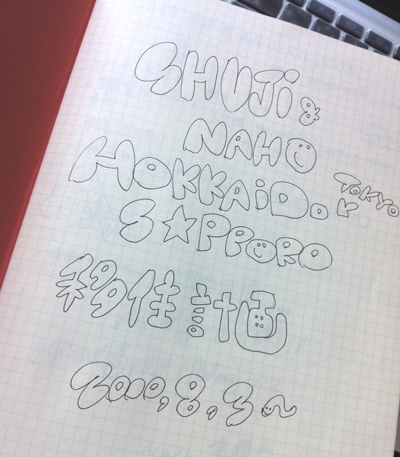 SHUJi &
NAHO
HOKKAiDo
TOKYO
S★PPORO
移住計画
2010,8,3~